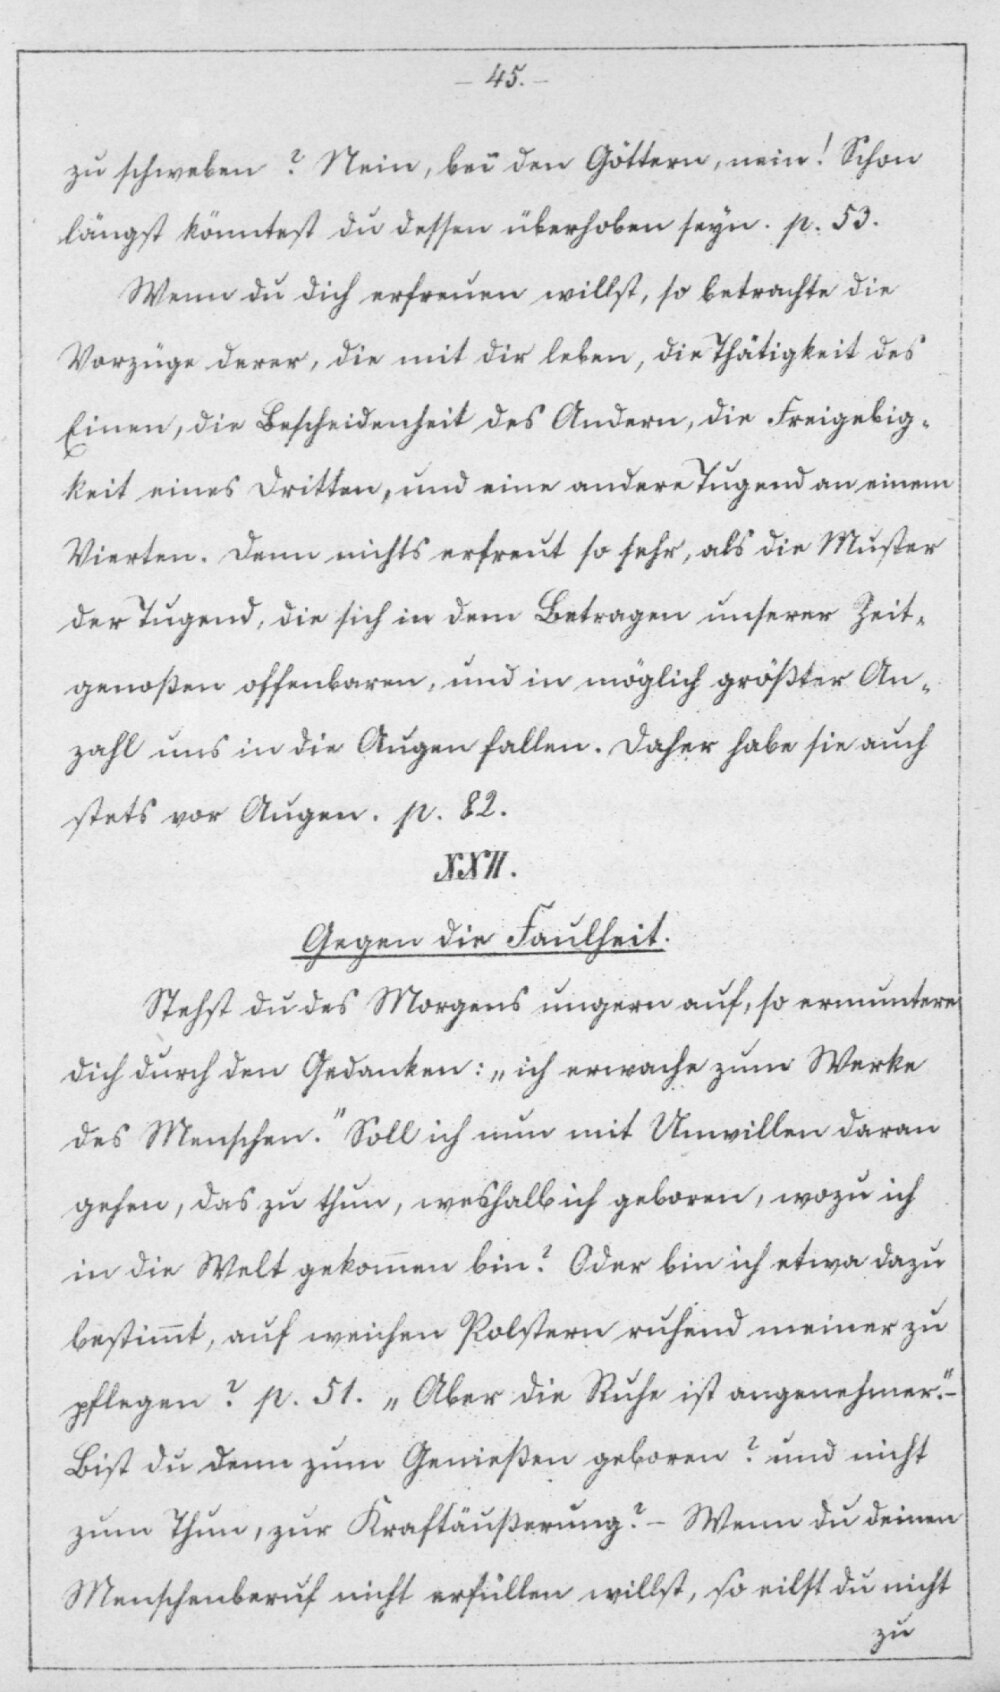 – 45. –
zu schweben? Nein, bei den Göttern, nein! Schon
längst könntest du dessen überhoben seyn. p. 53.
Wenn du dich erfreuen willst, so betrachte die
Vorzüge derer, die mit dir leben, die Thätigkeit des
Einen, die Bescheidenheit des Andern, die Freigebig-
keit eines Dritten, und eine andere Tugend an einem
Vierten. Denn nichts erfreut so sehr, als die Muster
der Tugend, die sich in dem Betragen unserer Zeit-
genoßen offenbaren, und in möglich größter An-
zahl uns in die Augen fallen. Daher habe sie auch
stets vor Augen. p. 82.
XXII.
Gegen die Faulheit.
Stehst du des Morgens ungern auf, so ermuntere
dich durch den Gedanken: „ich erwache zum Werke
des Menschen." Soll ich nun mit Unwillen daran
gehen, das zu thun, weshalb ich geboren, wozu ich
in die Welt gekom̅en bin? Oder bin ich etwa dazu
bestim̅t, auf weichen Polstern ruhend meiner zu
pflegen? p. 51. „Aber die Ruhe ist angenehmer." –
Bist du denn zum Genießen geboren? und nicht
zum Thun, zur Kraftäußerung? – Wenn du deinen
Menschenberuf nicht erfüllen willst, so eilst du nicht
zu